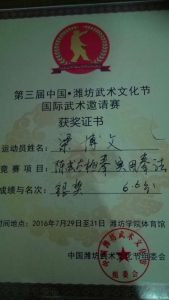 第三届中国·潍坊武术文化节
国际武术邀请赛
获奖证书
运动员姓名: 梁博文
竞赛项目: 陈式太极拳 实用拳法
成绩与名次: 银奖 6.6分
时间地点: 2016年7月29日至31日 潍坊学院体育馆
中国潍坊武术文化节组委会